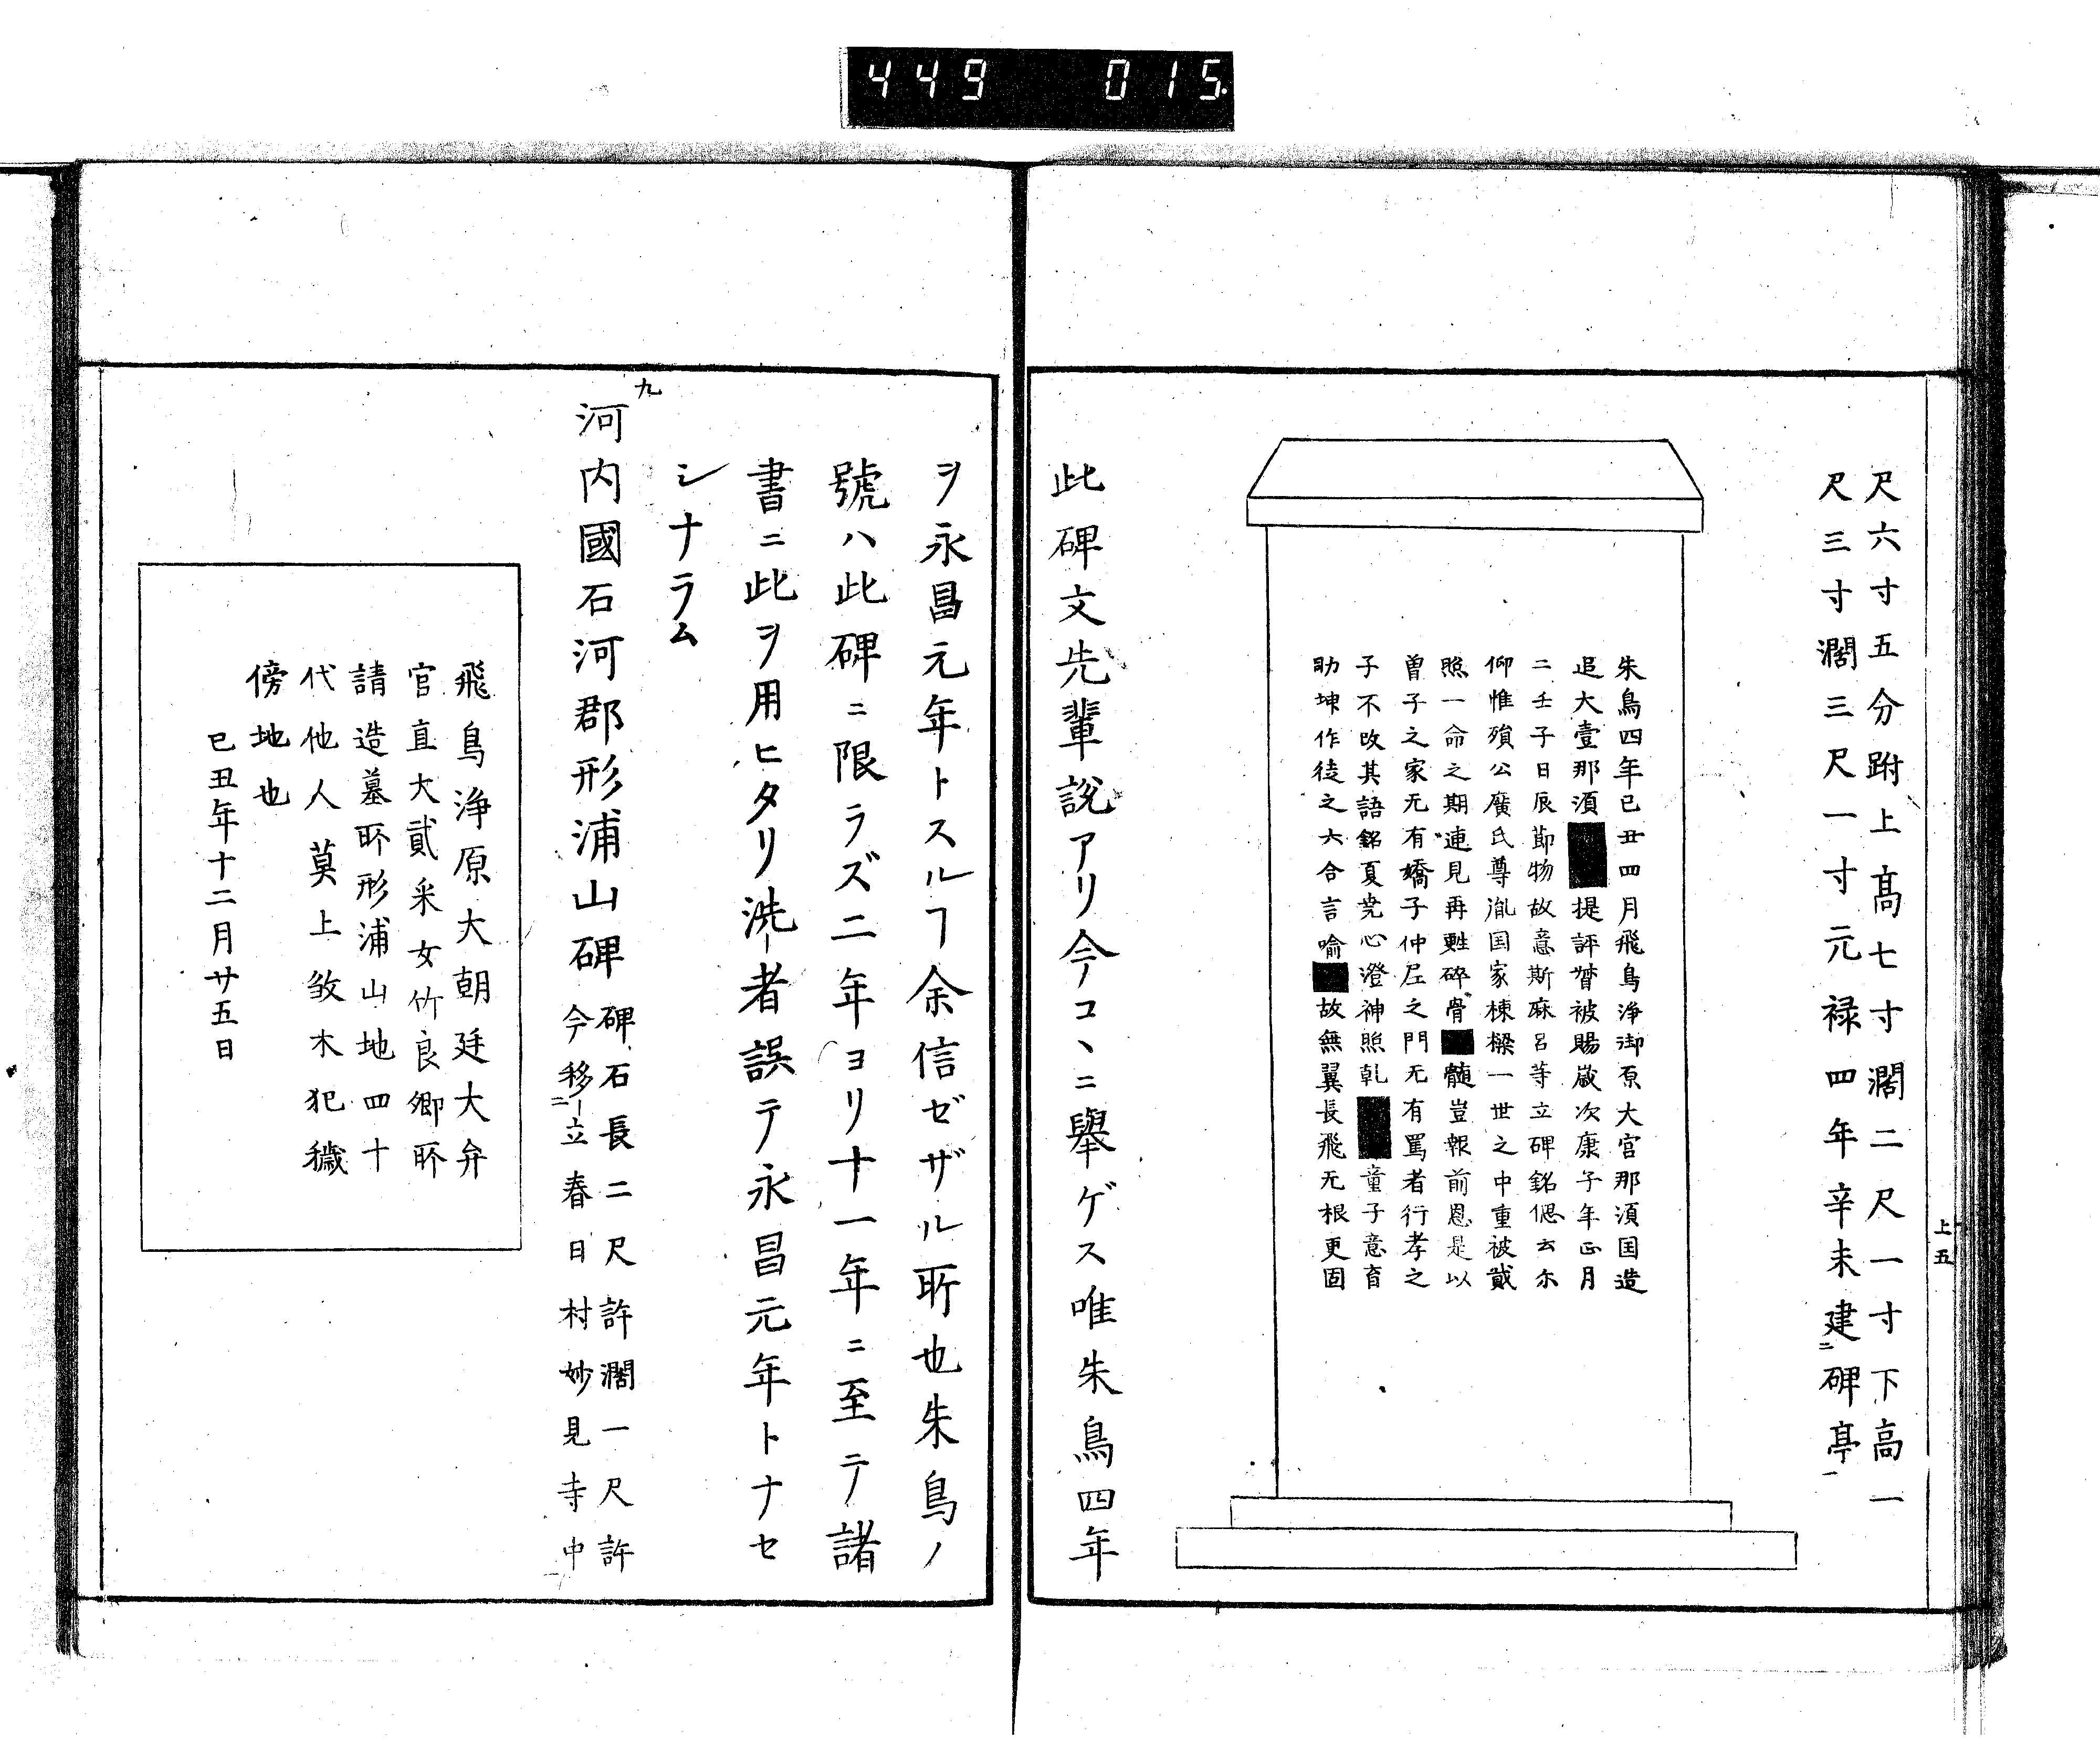 449 015.
上五
尺六寸五分跗上髙七寸濶二尺一寸下高一
尺三寸濶三尺一寸元禄四年辛未建ニ碑亭一
朱鳥四年己丑四月飛鳥浄御原大宮那須国造
追大壹那湏■提評督被賜嵗次康子年正月
二壬子日辰節物故意斯麻呂等立碑銘偲云尓
仰惟殞公廣氏尊胤国家棟樑一世之中重被貮
照一命之期連見再甦碎骨■髄豈報前恩是以
曽子之家无有嬌子仲尼之門无有罵者行孝之
子不改其語銘夏尭心澄神照乹■童子意育
助坤作徒之大合言喻■故無翼長飛无根更固
此碑文先輩説アリ今コヽニ舉ゲス唯朱鳥四年
ヲ永昌元年トスルヿ余信ゼザル所也朱鳥ノ
號ハ此碑ニ限ラズ二年ヨリ十一年ニ至テ諸
書ニ此ヲ用ヒタリ洗者誤テ永昌元年トナセ
シナラム
九
河内國石河郡形浦山碑 碑石長二尺許濶一尺許
今移ニ立春日村妙見寺中
飛鳥浄原大朝廷大弁
官直大貳采女竹良卿所
請造墓所形浦山地四十
代他人莫上毀木犯穢
傍地也
己丑年十二月廿五日